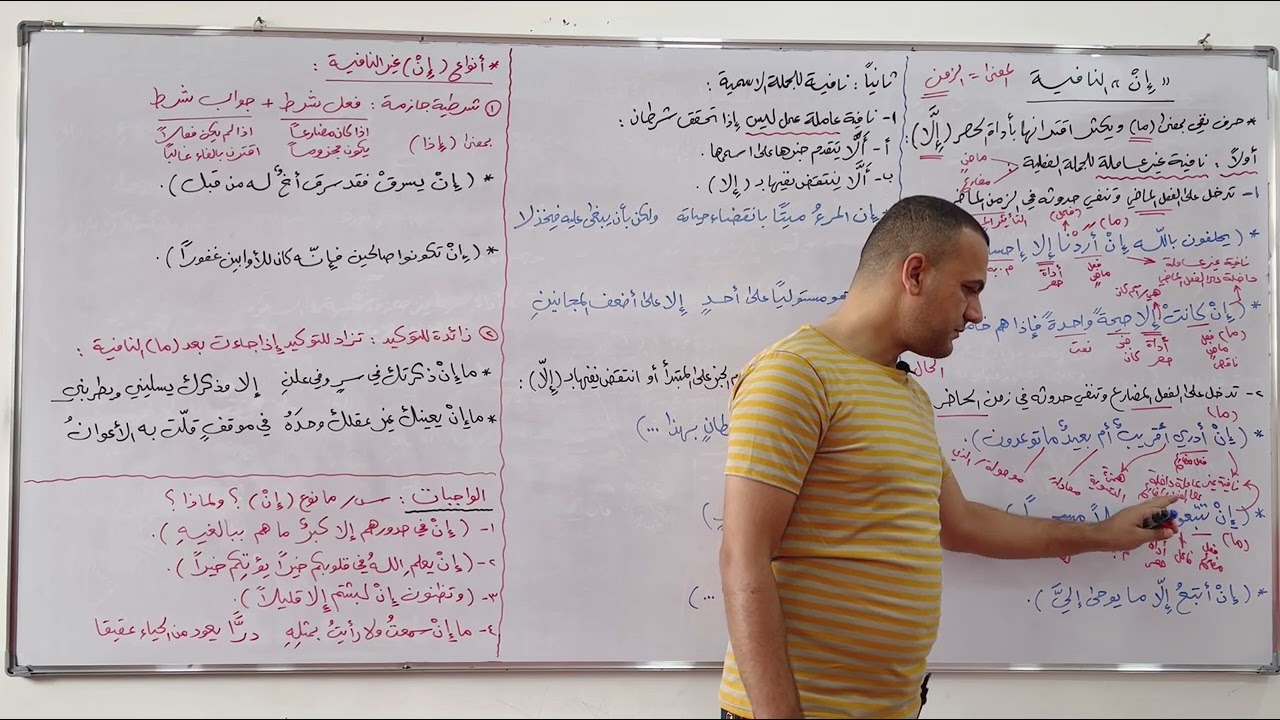 « إنْ » النافية
المعنى = الزمن
* حرف نفي بمعنى (ما) ويكثر اقترانها بأداة الحصر (إلَّا):
أولاً: نافية غير عاملة للجملة الفعلية:
ماضي
مضارع
١- تدخل على الفعل الماضي وتنفي حدوثه في الزمن الماضي
* (يحلفون بالله إنْ أردْنا إلا إحسا
نافية غير عاملة
داخلة على الفعل الماضي
فعل ماضي
أداة حصر
م. به
* (إنْ كانتْ إلا صيحةً واحدةً فإذا هم
(ما)
فعل ماضي ناقص
أداة حصر
خبر كان
نعت
الحال
٢- تدخل على الفعل المضارع وتنفي حدوثه في زمن الحاضر
(ما)
* (إنْ أدري أقريبٌ أم بعيدٌ ما توعدون).
فعل مضارع
همزة التسوية
معادلة
موصولة / الذي
نافية غير عاملة داخلة
* (إنْ تتبعو
(ما)
فعل مضارع
فاعل
أداة حصر
* (إنْ أتبعُ إلّا ما يوحى إليَّ).
ثانياً: نافية للجملة الاسمية:
١- نافية عاملة عمل ليس إذا تحقق شرطان:
أ- ألَّا يتقدم خبرها على اسمها.
ب- ألَّا ينتقض نفيها بـ (إلا).
إن المرءُ ميتاً بانقضاء حياته ولكن بأن يبغى عليه فيخذلا
هو مستولياً على أحدٍ إلا على أضعف المجانينِ
م الخبر على المبتدأ أو انتقض نفيها بـ (إلّا):
طانٍ بهذا ...)
...)
* أنواع (إنْ) غير النافية:
① شرطية جازمة: فعل شرط + جواب شرط
بمعنى (إذا)
إذا كان مضارعاً يكون مجزوماً
اذا لم يكن مضارعاً اقترن بالفاء غالباً
* (إنْ يسرقْ فقد سرق أخٌ له من قبل).
* (إنْ تكونوا صالحين فإنّه كان للأوابين غفوراً).
② زائدة للتوكيد: تزاد للتوكيد إذا جاءت بعد (ما) النافية:
* ما إنْ ذكرتك في سرٍ وفي علنِ إلا وذكرك يسليني ويطربني
* ما إنْ يعينك غير عقلك وحدَهُ في موقفٍ قلّت به الأعوانُ
الواجبات: س/ ما نوع (إنْ)؟ ولماذا؟
١- (إنْ في صدورهم إلا كبرٌ ما هم ببالغيهِ).
٢- (إنْ يعلمِ اللهُ في قلوبكم خيراً يؤتِكم خيراً).
٣- (وتظنون إنْ لبثتم إلا قليلاً).
٤- ما إنْ سمعتُ ولا رأيتُ بمثلِهِ درّاً يعود من الحياء عقيقا